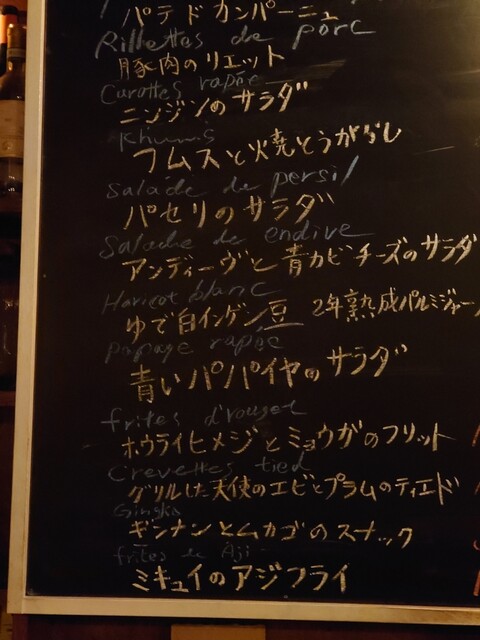 パテ ド カンパーニュ
Rillettes de porc
豚肉のリエット
Carottes rapée
ニンジンのサラダ
Khums
フムスと焼とうがらし
Salade de persil
パセリのサラダ
Salade de endive
アンディーヴと青カビチーズのサラダ
Haricot blanc
ゆで白インゲン豆 2年熟成パルミジャーノ
papaye rapée
青いパパイヤのサラダ
frites d'rouget
ホウライヒメジとミョウガのフリット
Crevettes tied
グリルした天使のエビとプラムのティエド
Gingko
ギンナンとムカゴのスナック
frites de Aji
ミキュイのアジフライ